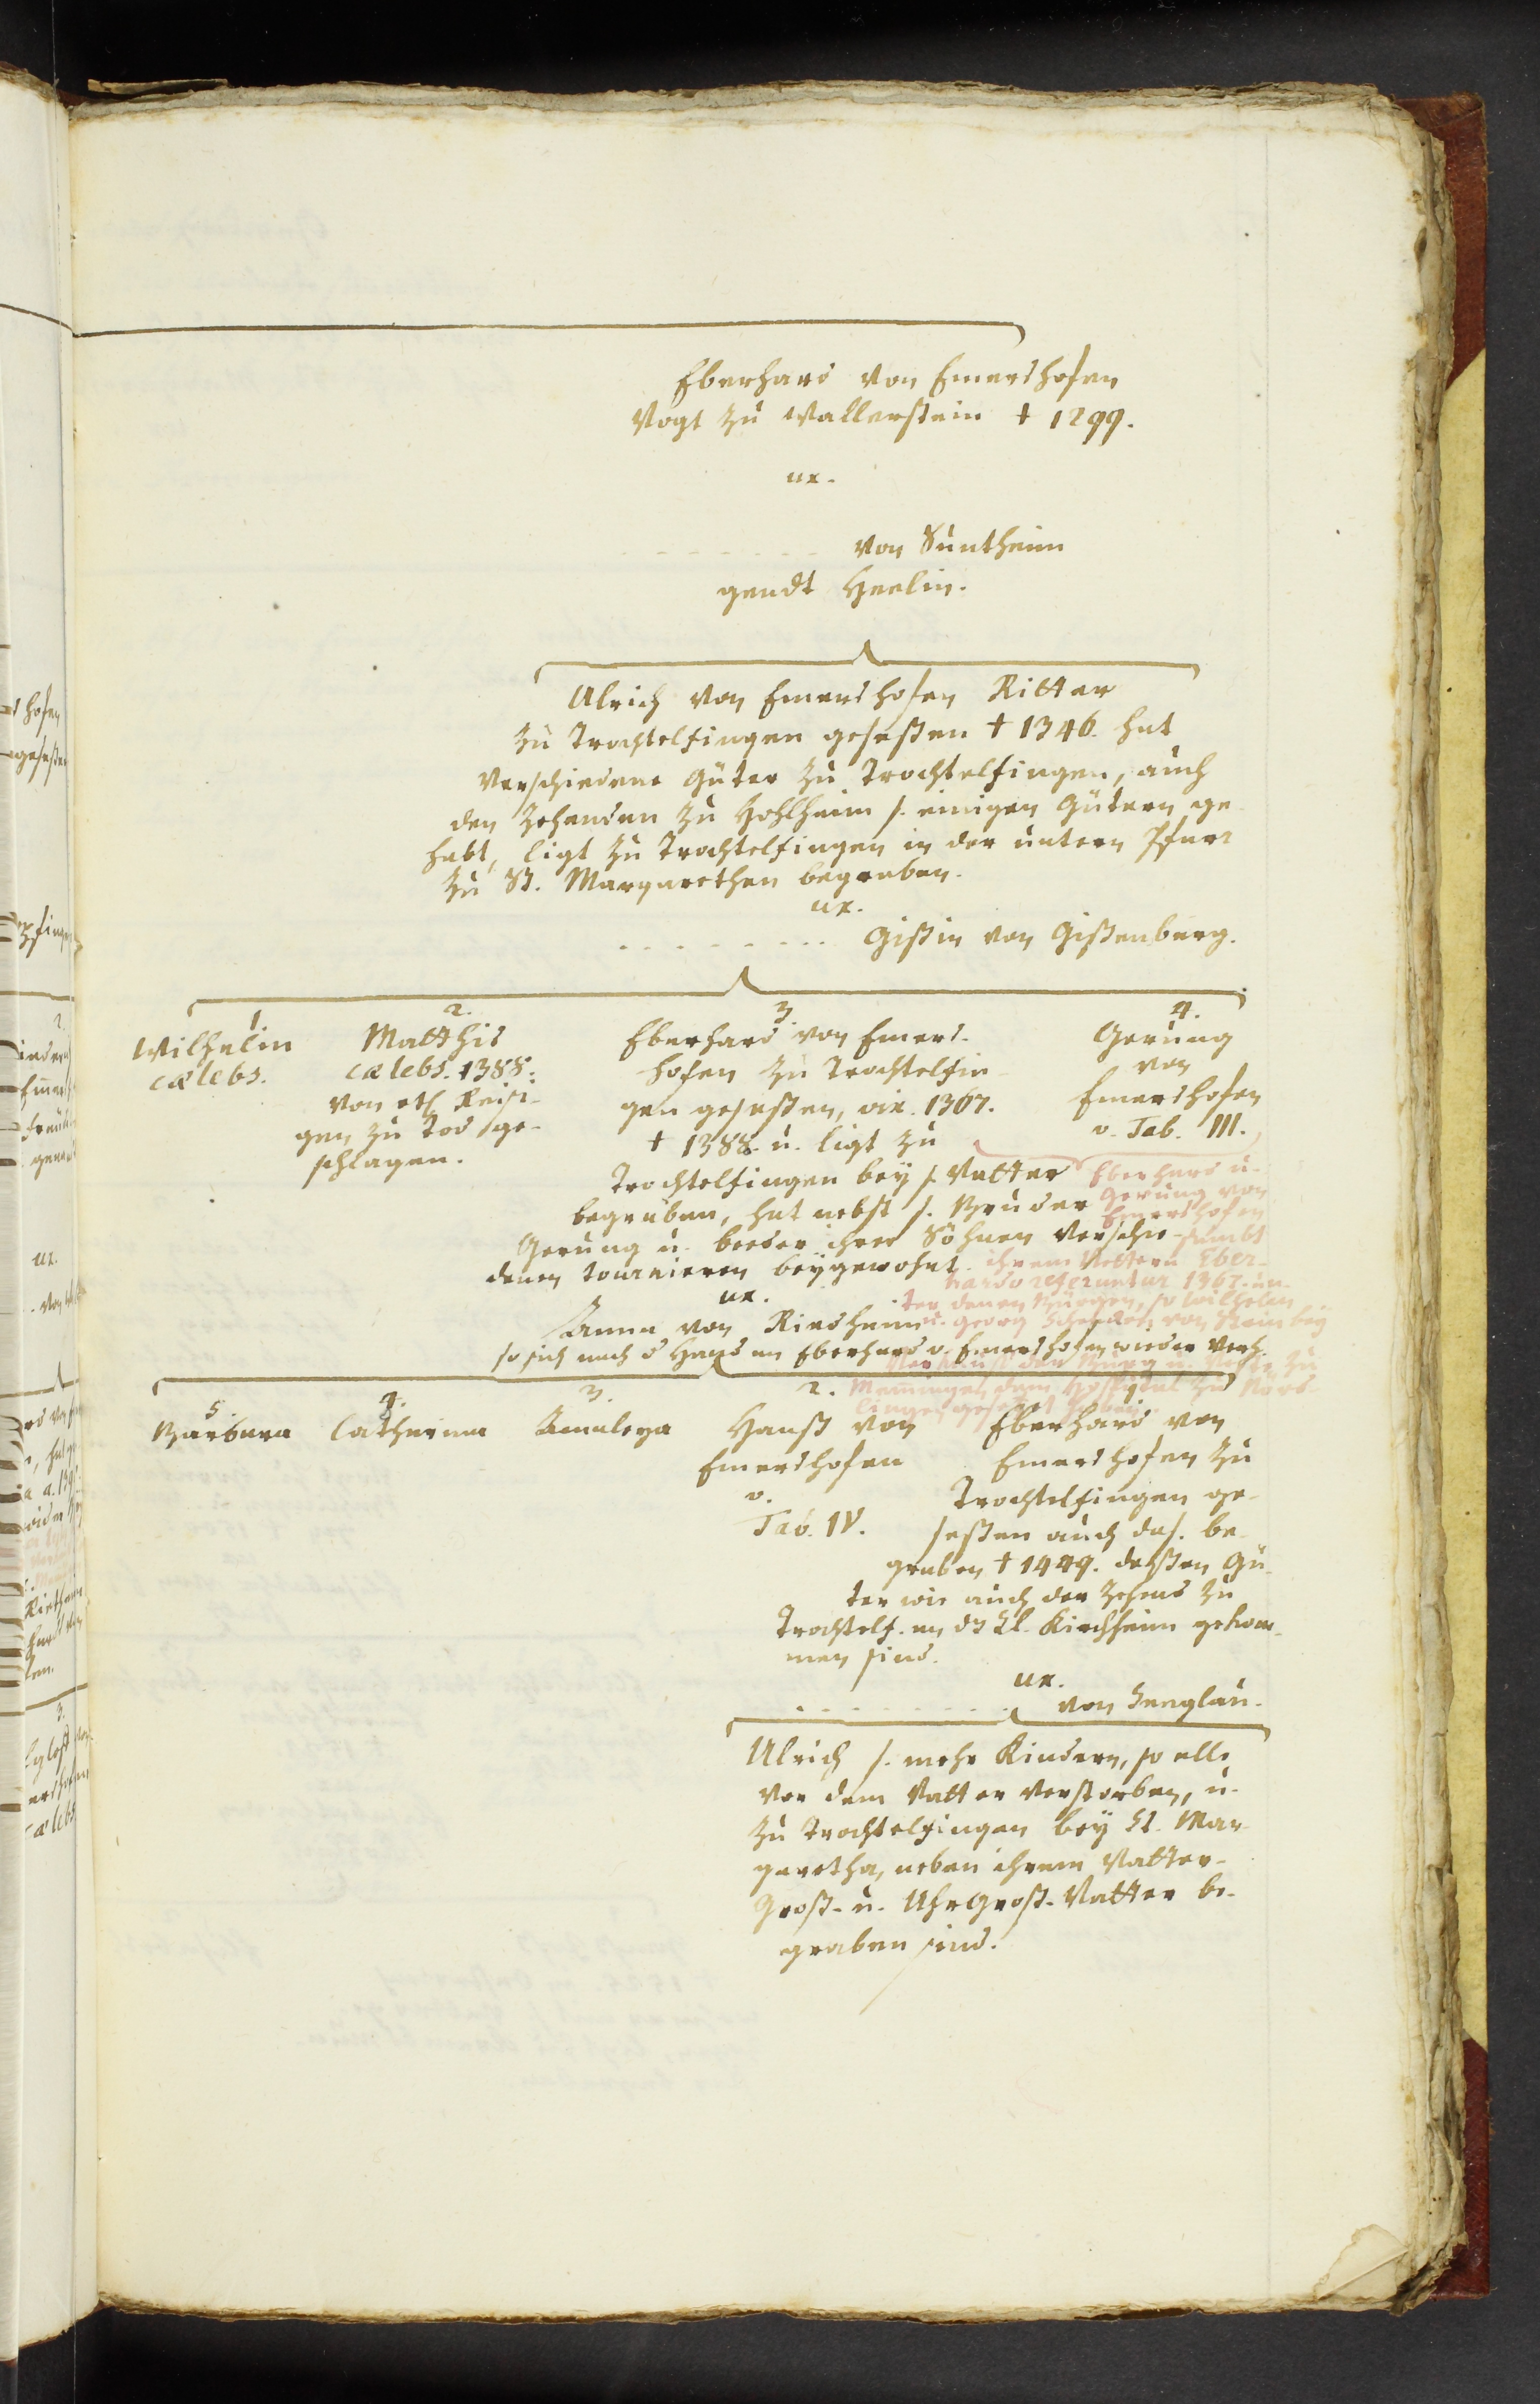 Eberhard von Emershofen
Vogt zu Wallerstein † 1299.
ux.
- - - - - - - - von Suntheim
gendt Heelin.
Ulrich von Emershofen Ritter
zu Trochtelfingen geseßen † 1346. hat
verschiedene Güter zu Trochtelfingen, auch
den Zehenden zu Hohlheim s. einigen Gütern ge-
habt, ligt zu Trochtelfingen in der untern Pfarr
zu St. Margarethen begraben.
ux.
- - - - - - - - Gißin von Gißenburg.
1.
Wilhelm
cælebs.
2.
Matthis
cælebs. 1388.
von etl. Reisi-
gen zu Tod ge-
schlagen.
3.
Eberhard von Emers-
hofen zu Trochtelfin-
gen geseßen, vix. 1367.
† 1388. u. ligt zu
Trochtelfingen bey s. Vatter
begraben, hat nebst s. Bruder
Gerung u. beeder ihrer Söhnen verschie-
denen Tournieren beygewohnt.
ux.
Anna von Riedheim
so sich nach d Hand an Eberhard v. Emershofen wieder verh.
4.
Gerung
von
Emershofen
v. Tab. III.
Eberhard u.
Gerung von
Emershofen
sambt
ihrem Vettern Eber-
hardo referuntur 1367. un-
ter denen Bürgen, so Wilhelm
u. Georg Schenken von Stein bey
Verkauff der Burg u. zu
Memmingen dem Hospital zu Nörd-
lingen gesezet
5.
Barbara
4.
Catharina
3.
Amaleya
2.
Hanß von
Emershofen
v.
Tab. IV.
1.
Eberhard von
Emershofen zu
Trochtelfingen ge-
seßen auch das. be-
graben † 1449. deßen Gü-
ter wie auch der Zehend zu
Trochtelf. an dz Cl. Kirchheim gekom-
men sind.
ux.
- - - - - - - - von Senglau.
Ulrich s. mehr Kindern, so alle
vor dem Vatter verstorben, u.
zu Trochtelfingen bey St. Mar-
garetha, neben ihrem Vatter-
Groß- u. UhrGroß-Vatter be-
graben sind.